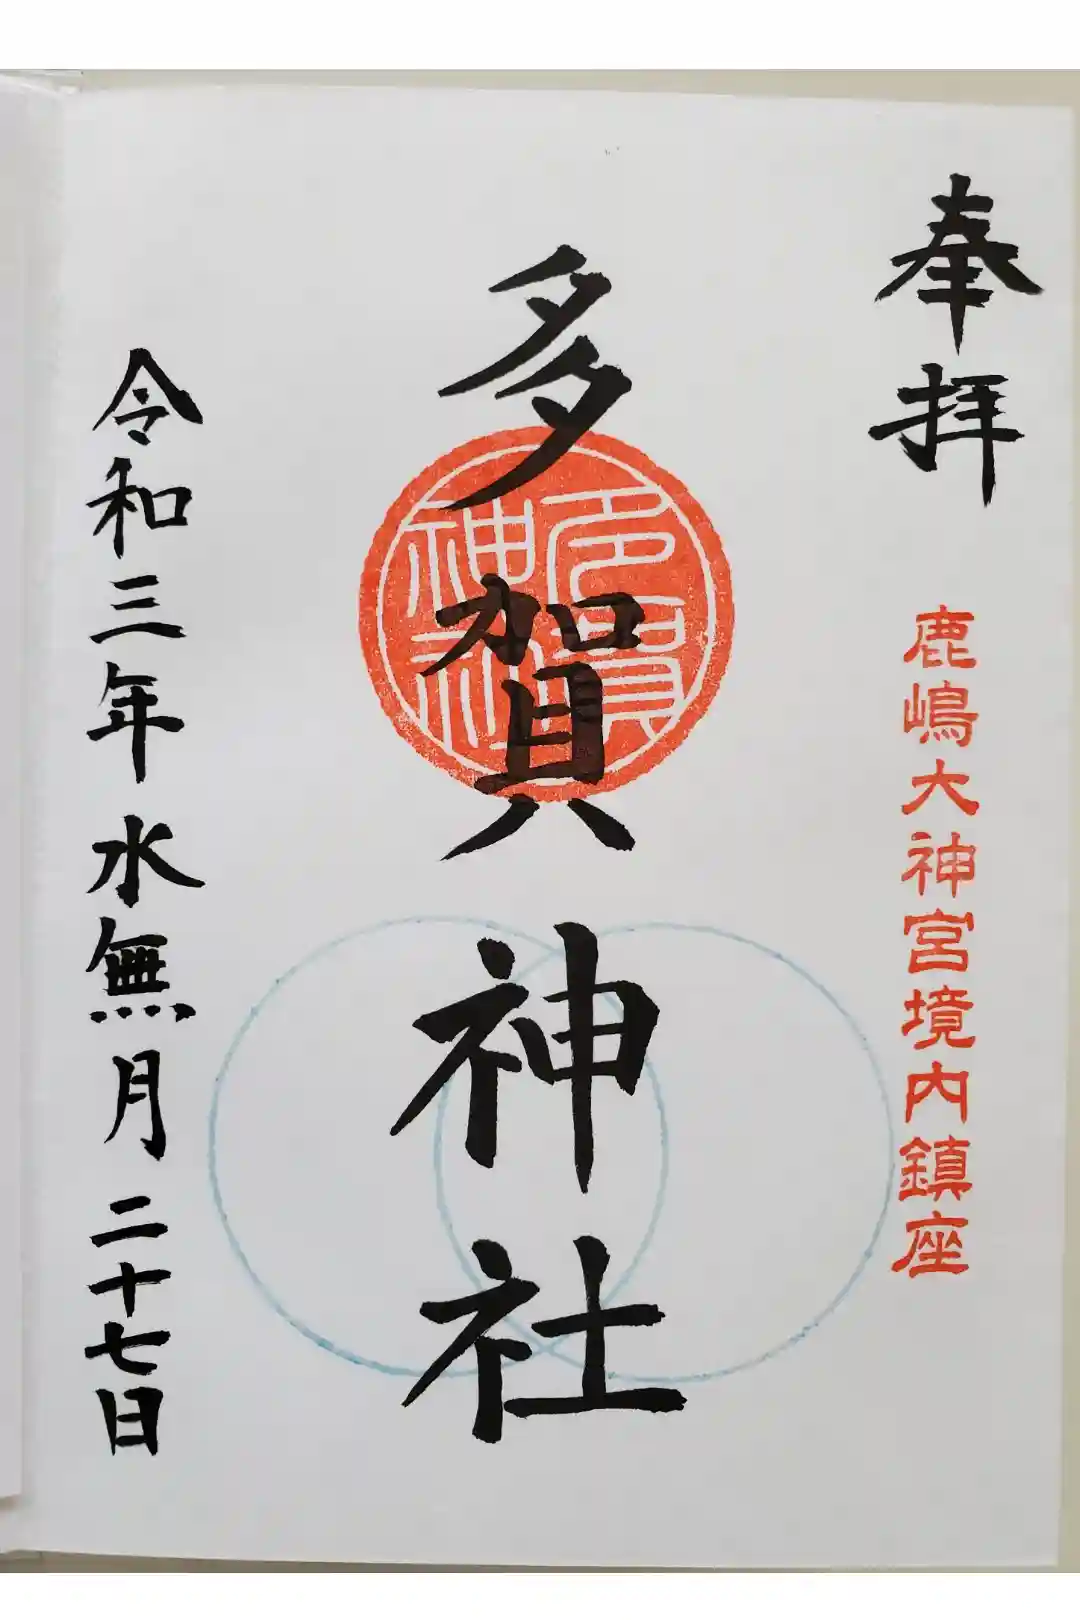 奉拝
鹿嶋大神宮境内鎮座
多賀神社
多賀
神社
令和三年水無月二十七日